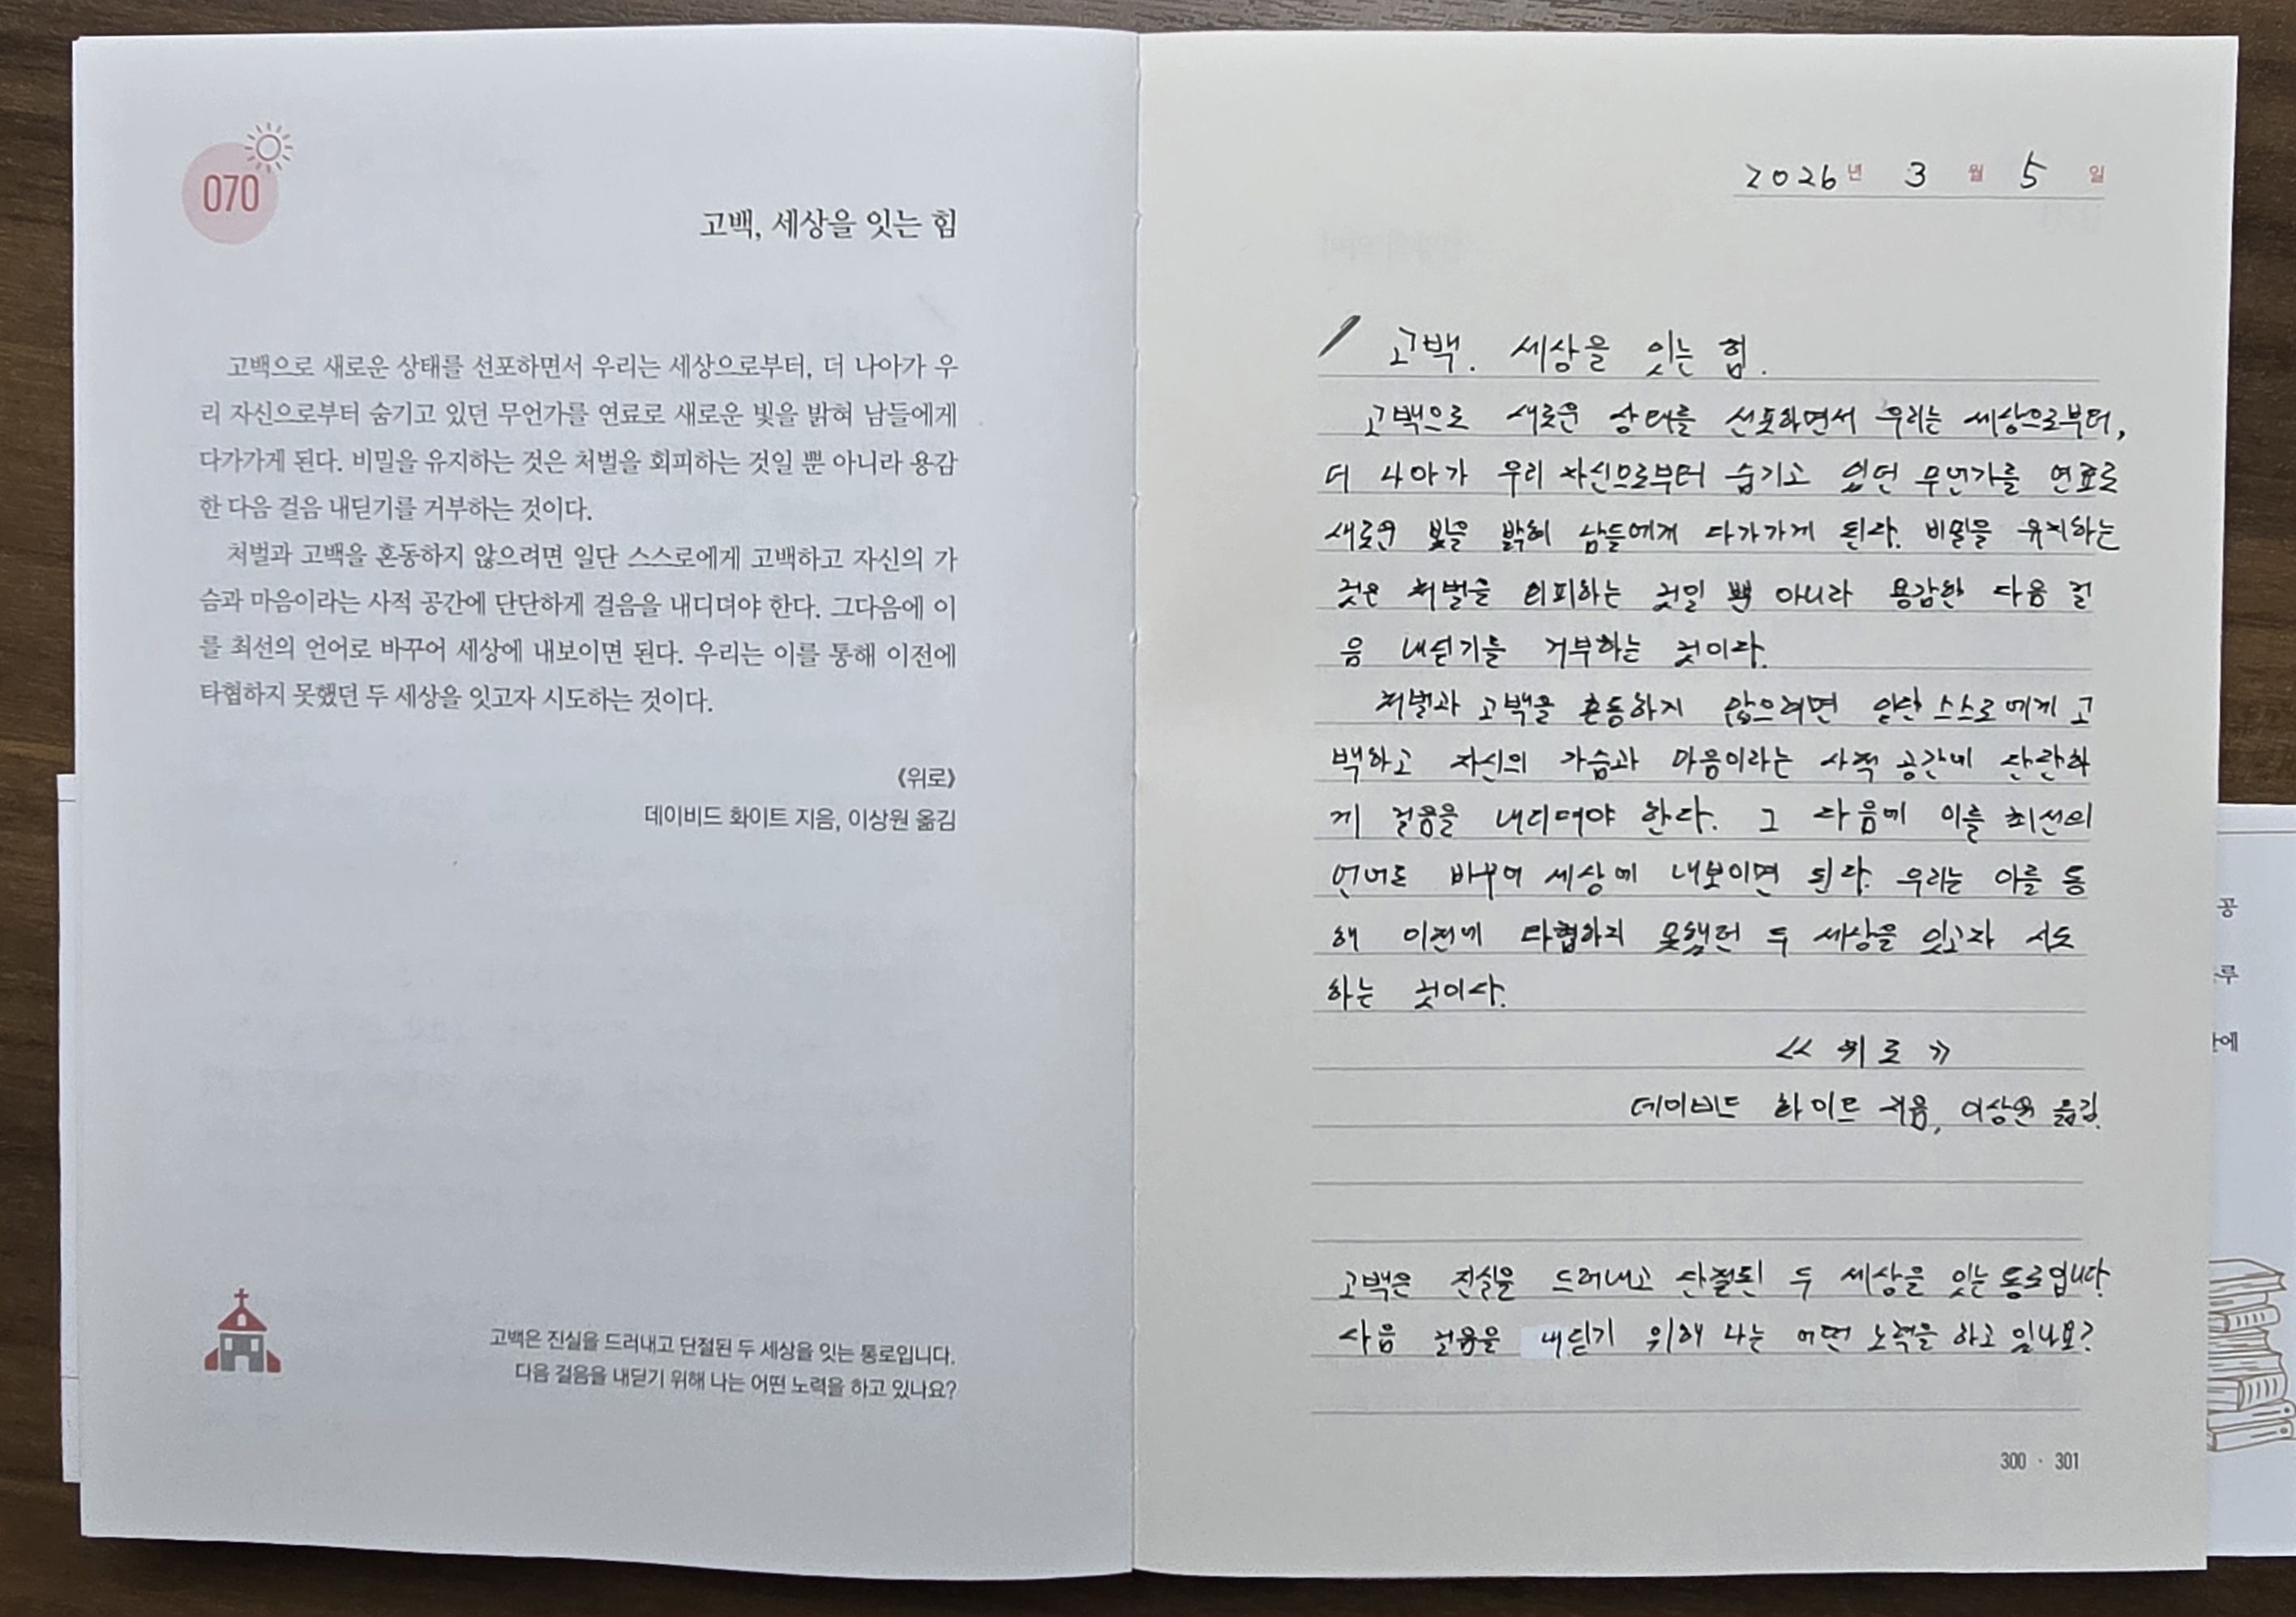 070
고백, 세상을 잇는 힘
고백으로 새로운 상태를 선포하면서 우리는 세상으로부터, 더 나아가 우
리 자신으로부터 숨기고 있던 무언가를 연료로 새로운 빛을 밝혀 남들에게
다가가게 된다. 비밀을 유지하는 것은 처벌을 회피하는 것일 뿐 아니라 용감
한 다음 걸음 내딛기를 거부하는 것이다.
처벌과 고백을 혼동하지 않으려면 일단 스스로에게 고백하고 자신의 가
슴과 마음이라는 사적 공간에 단단하게 걸음을 내디뎌야 한다. 그다음에 이
를 최선의 언어로 바꾸어 세상에 내보이면 된다. 우리는 이를 통해 이전에
타협하지 못했던 두 세상을 잇고자 시도하는 것이다.
《위로》
데이비드 화이트 지음, 이상원 옮김
고백은 진실을 드러내고 단절된 두 세상을 잇는 통로입니다.
다음 걸음을 내딛기 위해 나는 어떤 노력을 하고 있나요?
2026년 3월 5일
고백. 세상을 잇는 힘.
고백으로 새로운 상태를 선포하면서 우리는 세상으로부터,
더 나아가 우리 자신으로부터 숨기고 있던 무언가를 연료로
새로운 빛을 밝혀 남들에게 다가가게 된다. 비밀을 유지하는
것은 처벌을 회피하는 것일 뿐 아니라 용감한 다음 걸
음 내딛기를 거부하는 것이다.
처벌과 고백을 혼동하지 않으려면 일단 스스로에게 고
백하고 자신의 가슴과 마음이라는 사적 공간에 단단하
게 걸음을 내디뎌야 한다. 그 다음에 이를 최선의
언어로 바꾸어 세상에 내보이면 된다. 우리는 이를 통
해 이전에 타협하지 못했던 두 세상을 잇고자 시도
하는 것이다.
《위로》
데이비드 화이트 지음, 이상원 옮김.
고백은 진실을 드러내고 단절된 두 세상을 잇는 통로입니다
다음 걸음을 내딛기 위해 나는 어떤 노력을 하고 있나요?
300 · 301
공
루
에